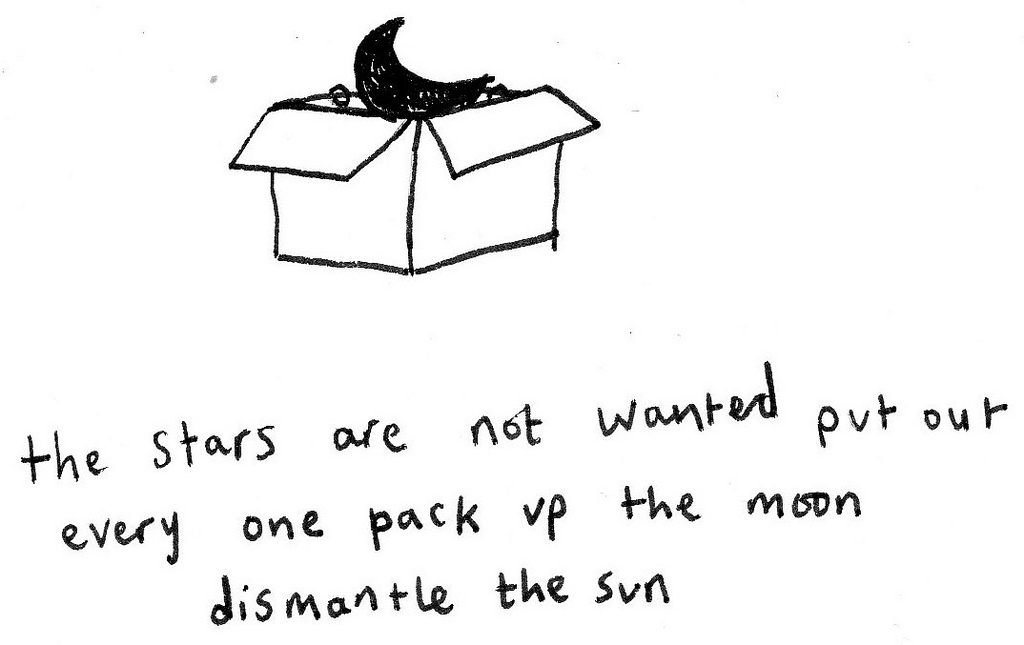 the stars are not wanted put out
every one pack up the moon
dismantle the sun